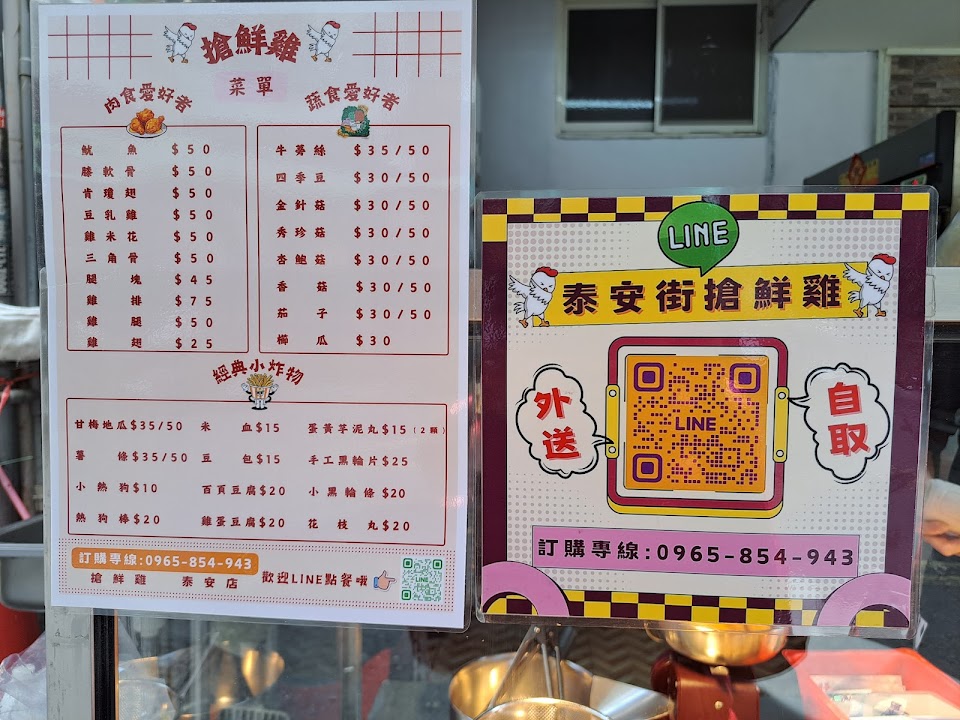 搶鮮雞
菜單
肉食愛好者
魷魚 $50
膝軟骨 $50
肯瓊翅 $50
豆乳雞 $50
雞米花 $50
三角骨 $50
腿塊 $45
雞排 $75
雞腿 $50
雞翅 $25
蔬食愛好者
牛蒡絲 $35/50
四季豆 $30/50
金針菇 $30/50
秀珍菇 $30/50
杏鮑菇 $30/50
香菇 $30/50
茄子 $30/50
櫛瓜 $30
經典小炸物
甘梅地瓜$35/50 米血$15 蛋黃芋泥丸$15(2顆)
薯條$35/50 豆包$15 手工黑輪片$25
小熱狗$10 百頁豆腐$20 小黑輪條$20
熱狗棒$20 雞蛋豆腐$20 花枝丸$20
訂購專線:0965-854-943
搶鮮雞 泰安店 歡迎LINE點餐哦
LINE
LINE
泰安街搶鮮雞
外送
LINE
自取
訂購專線:0965-854-943